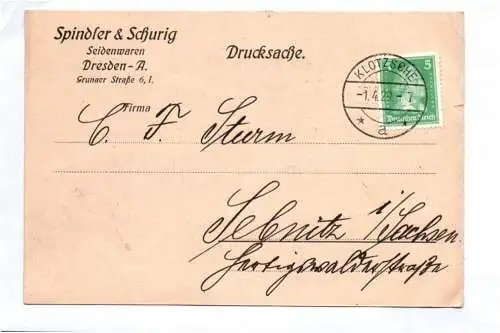 Spindler & Schurig
Seidenwaren
Dresden-A.
Grunaer Straße 6, I.
Drucksache.
KLOTZSCHE
-1.4.29-7
* a
5
Deutsches Reich
Firma
C. F. Sturm
Sebnitz i/Sachsen
Hertigswalderstraße